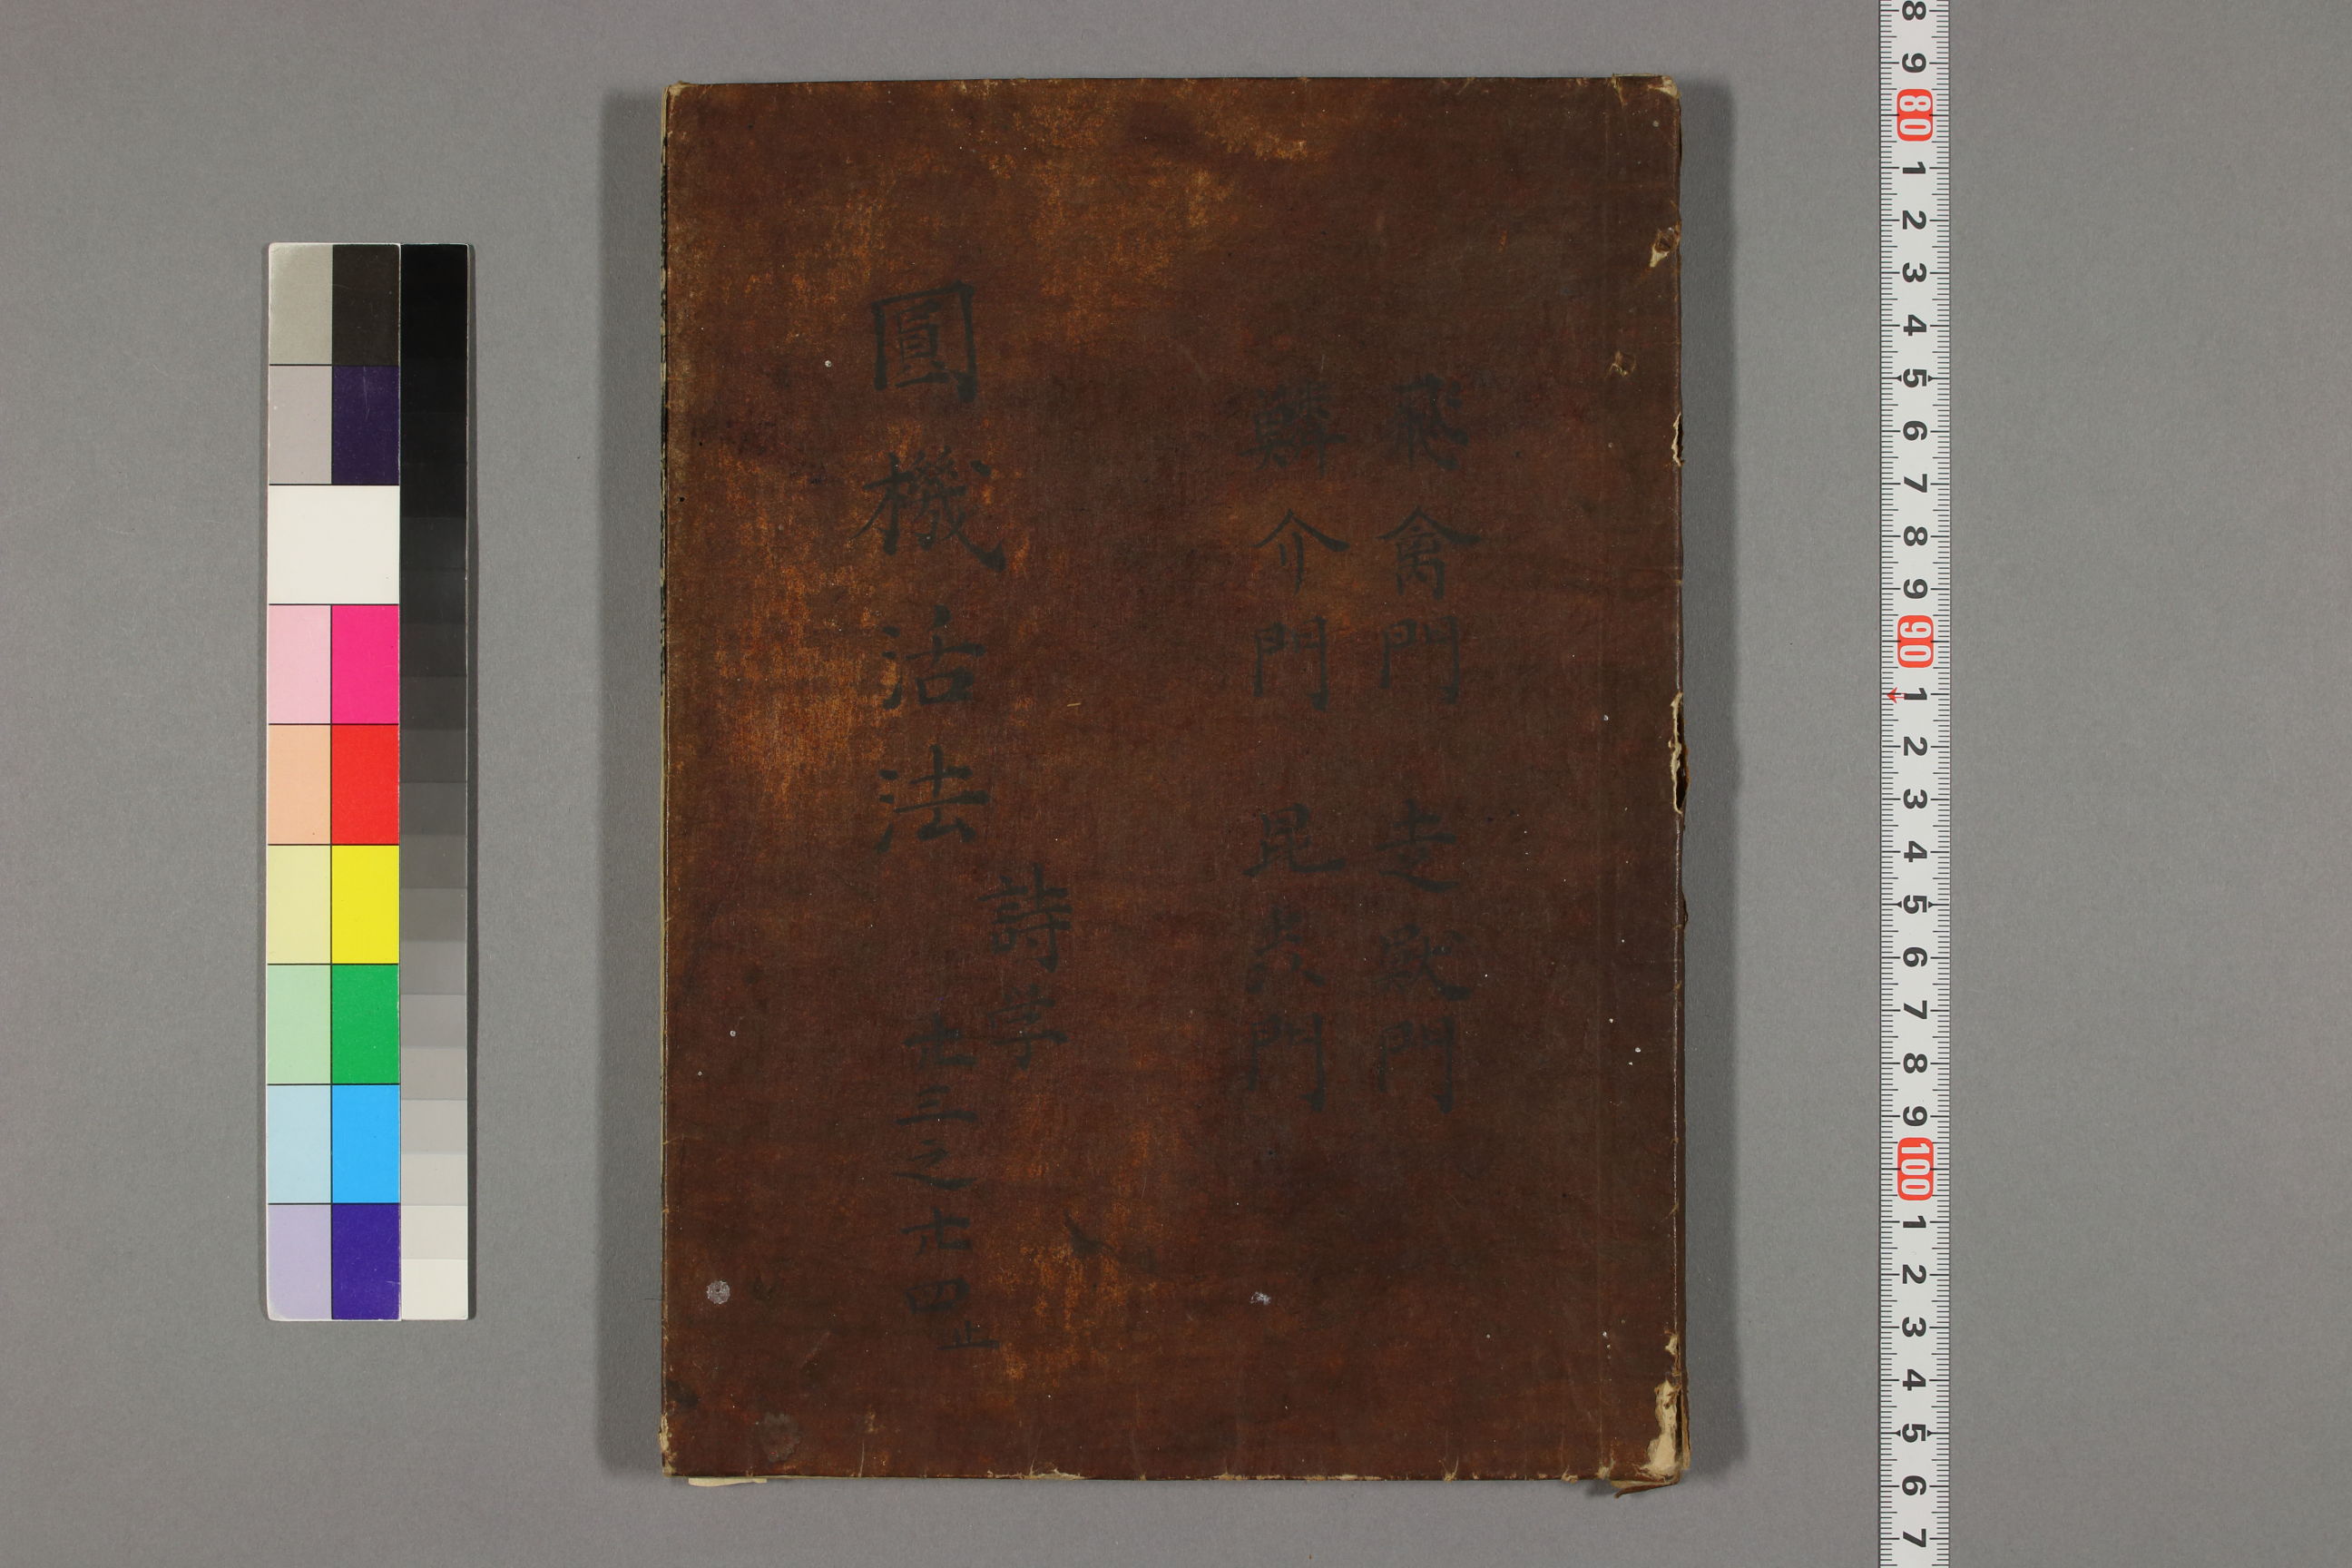 飛禽門 走獣門
鱗介門 昆虫門
圓機活法 詩学 廿三之廿四止
8 9 80 1 2 3 4 5 6 7 8 9 90 1 2 3 4 5 6 7 8 9 100 1 2 3 4 5 6 7